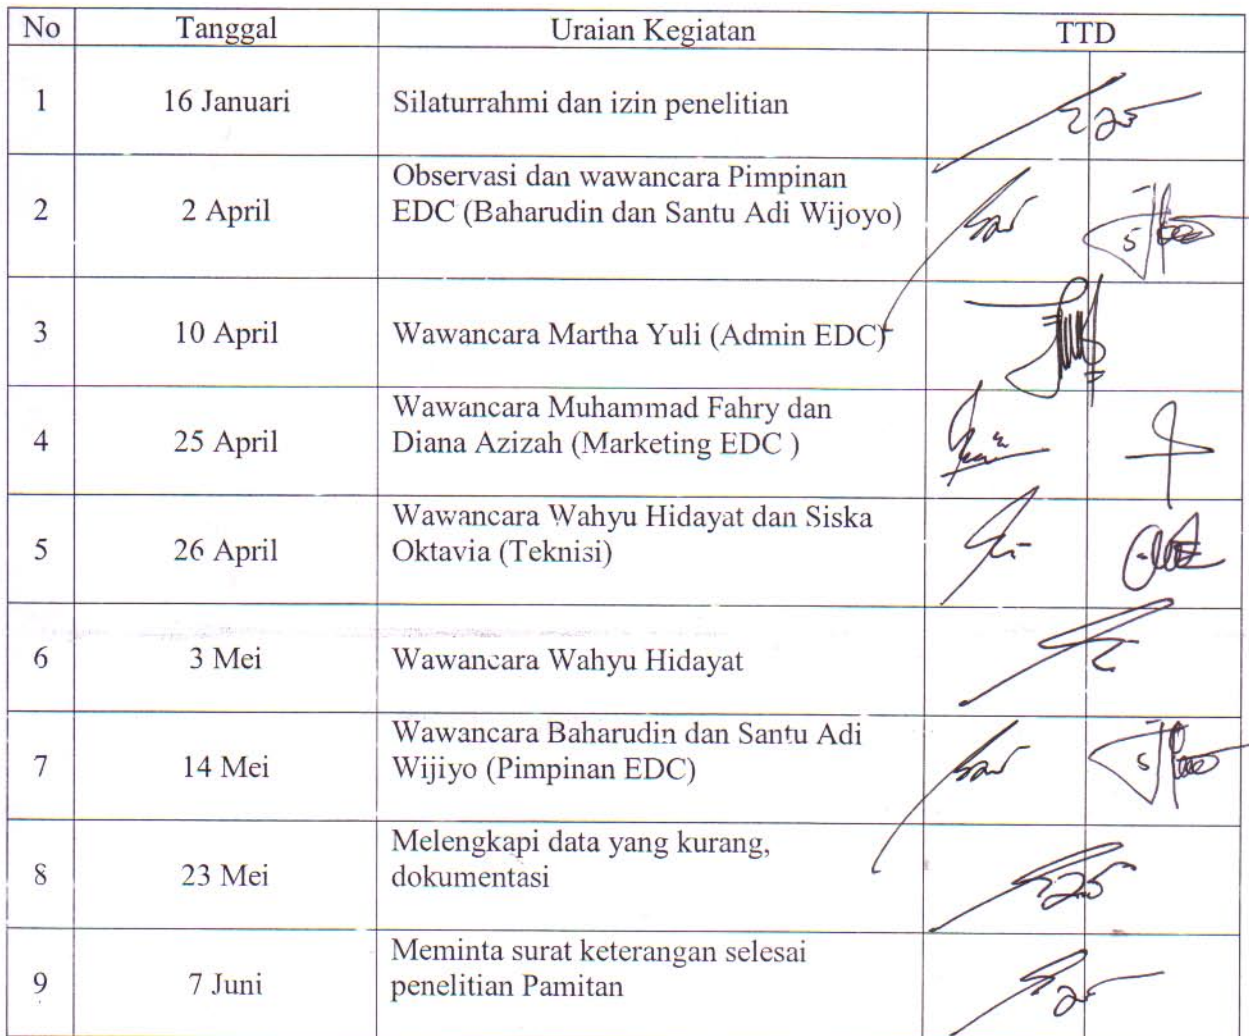 No Tanggal Uraian Kegiatan TTD
1 16 Januari Silaturrahmi dan izin penelitian
Observasi dan wawancara Pimpinan
2 2 April EDC (Baharudin dan Santu Adi Wijoyo)
3 10 April Wawancara Martha Yuli (Admin EDC)
Wawancara Muhammad Fahry dan
4 25 April Diana Azizah (Marketing EDC )
Wawancara Wahyu Hidayat dan Siska
5 26 April Oktavia (Teknisi)
6 3 Mei Wawancara Wahyu Hidayat
Wawancara Baharudin dan Santu Adi
7 14 Mei Wijiyo (Pimpinan EDC)
Melengkapi data yang kurang,
8 23 Mei dokumentasi
Meminta surat keterangan selesai
9 7 Juni penelitian Pamitan